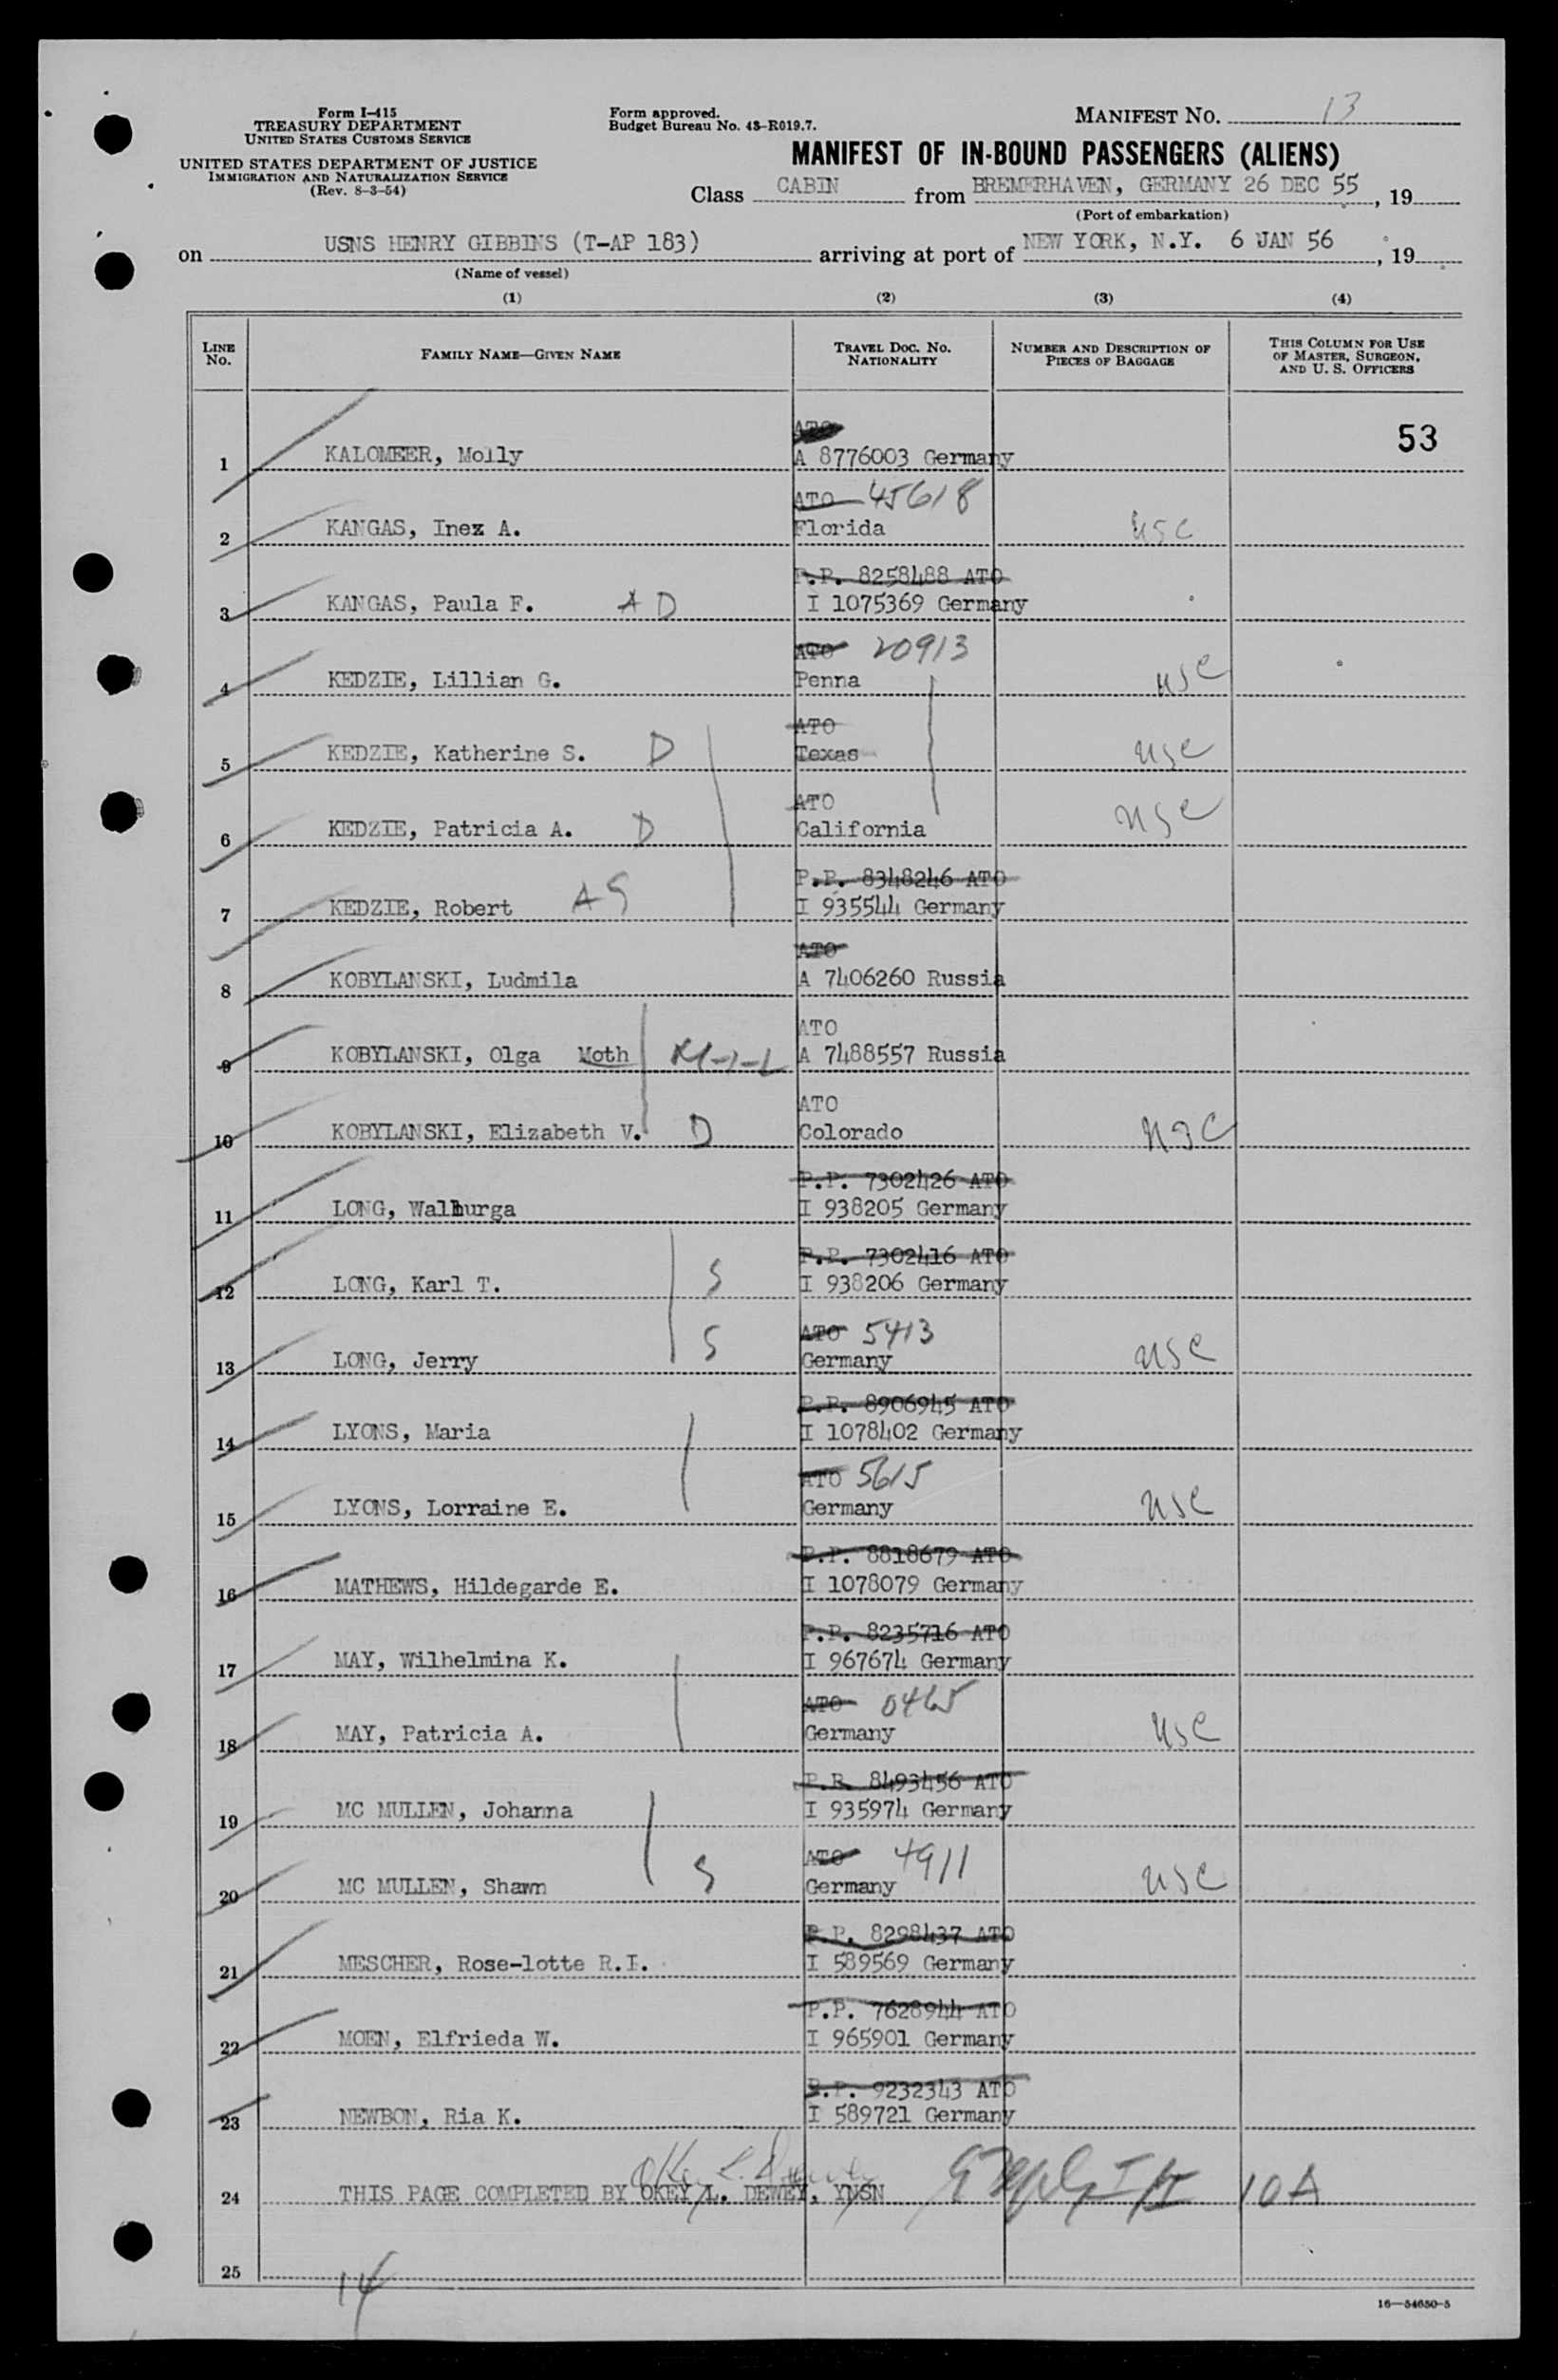 Form I-415
TREASURY DEPARTMENT
UNITED STATES CUSTOMS SERVICE
UNITED STATES DEPARTMENT OF JUSTICE
IMMIGRATION AND NATURALIZATION SERVICE
(Rev. 8-3-54)
Form approved.
Budget Bureau No. 43-R019.7.
MANIFEST NO. 13
MANIFEST OF IN-BOUND PASSENGERS (ALIENS)
Class CABIN from BREMERHAVEN, GERMANY 26 DEC 55, 19
(Port of embarkation)
on USNS HENRY GIBBINS (T-AP 183) arriving at port of NEW YORK, N.Y. 6 JAN 56, 19
(Name of vessel)
(1) (2) (3) (4)
LINE NO. FAMILY NAME—GIVEN NAME TRAVEL DOC. NO. NATIONALITY NUMBER AND DESCRIPTION OF PIECES OF BAGGAGE THIS COLUMN FOR USE OF MASTER, SURGEON, AND U. S. OFFICERS
ATO 53
1 KALOMEER, Molly A 8776003 Germany
ATO 45618
2 KANGAS, Inez A. Florida USC
P.P. 8258488 ATO
3 KANGAS, Paula F. A D I 1075369 Germany
ATO 20913
4 KEDZIE, Lillian G. Penna USC
ATO
5 KEDZIE, Katherine S. D Texas USC
ATO
6 KEDZIE, Patricia A. D California USC
P.P. 8348246 ATO
7 KEDZIE, Robert AS I 935544 Germany
ATO
8 KOBYLANSKI, Ludmila A 7406260 Russia
ATO
9 KOBYLANSKI, Olga Moth M-I-L A 7488557 Russia
ATO
10 KOBYLANSKI, Elizabeth V. D Colorado USC
P.P. 7302426 ATO
11 LONG, Walburga I 938205 Germany
P.P. 7302416 ATO
12 LONG, Karl T. S I 938206 Germany
ATO 5413
13 LONG, Jerry S Germany USC
P.P. 8906945 ATO
14 LYONS, Maria I 1078402 Germany
ATO 5615
15 LYONS, Lorraine E. Germany USC
P.P. 8818679 ATO
16 MATHEWS, Hildegarde E. I 1078079 Germany
P.P. 8235716 ATO
17 MAY, Wilhelmina K. I 967674 Germany
ATO 0465
18 MAY, Patricia A. Germany USC
P.P. 8493456 ATO
19 MC MULLEN, Johanna I 935974 Germany
ATO 4911
20 MC MULLEN, Shawn S Germany USC
P.P. 8298437 ATO
21 MESCHER, Rose-lotte R.I. I 589569 Germany
P.P. 7628944 ATO
22 MOEN, Elfrieda W. I 965901 Germany
P.P. 9232343 ATO
23 NEWBON, Ria K. I 589721 Germany
24 THIS PAGE COMPLETED BY OKEY L. DEWEY, YNSN 10A
25
14
16—54650-5